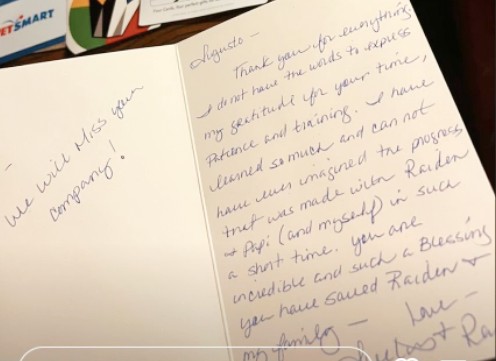 PETSMART
We will Miss your
company!
Augusto -
Thank you for everything
I do not have the words to express
my gratitude for your time,
Patience and training. I have
learned so much and can not
have ever imagined the progress
that was made with Raiden
+ Papi (and myself) in such
a short time. You are
incredible and such a Blessing
you have saved Raiden +
my family - Love -